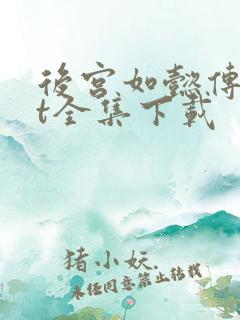 後宮如懿傳
t全集下載
猪小妖.
未经同意禁止转载